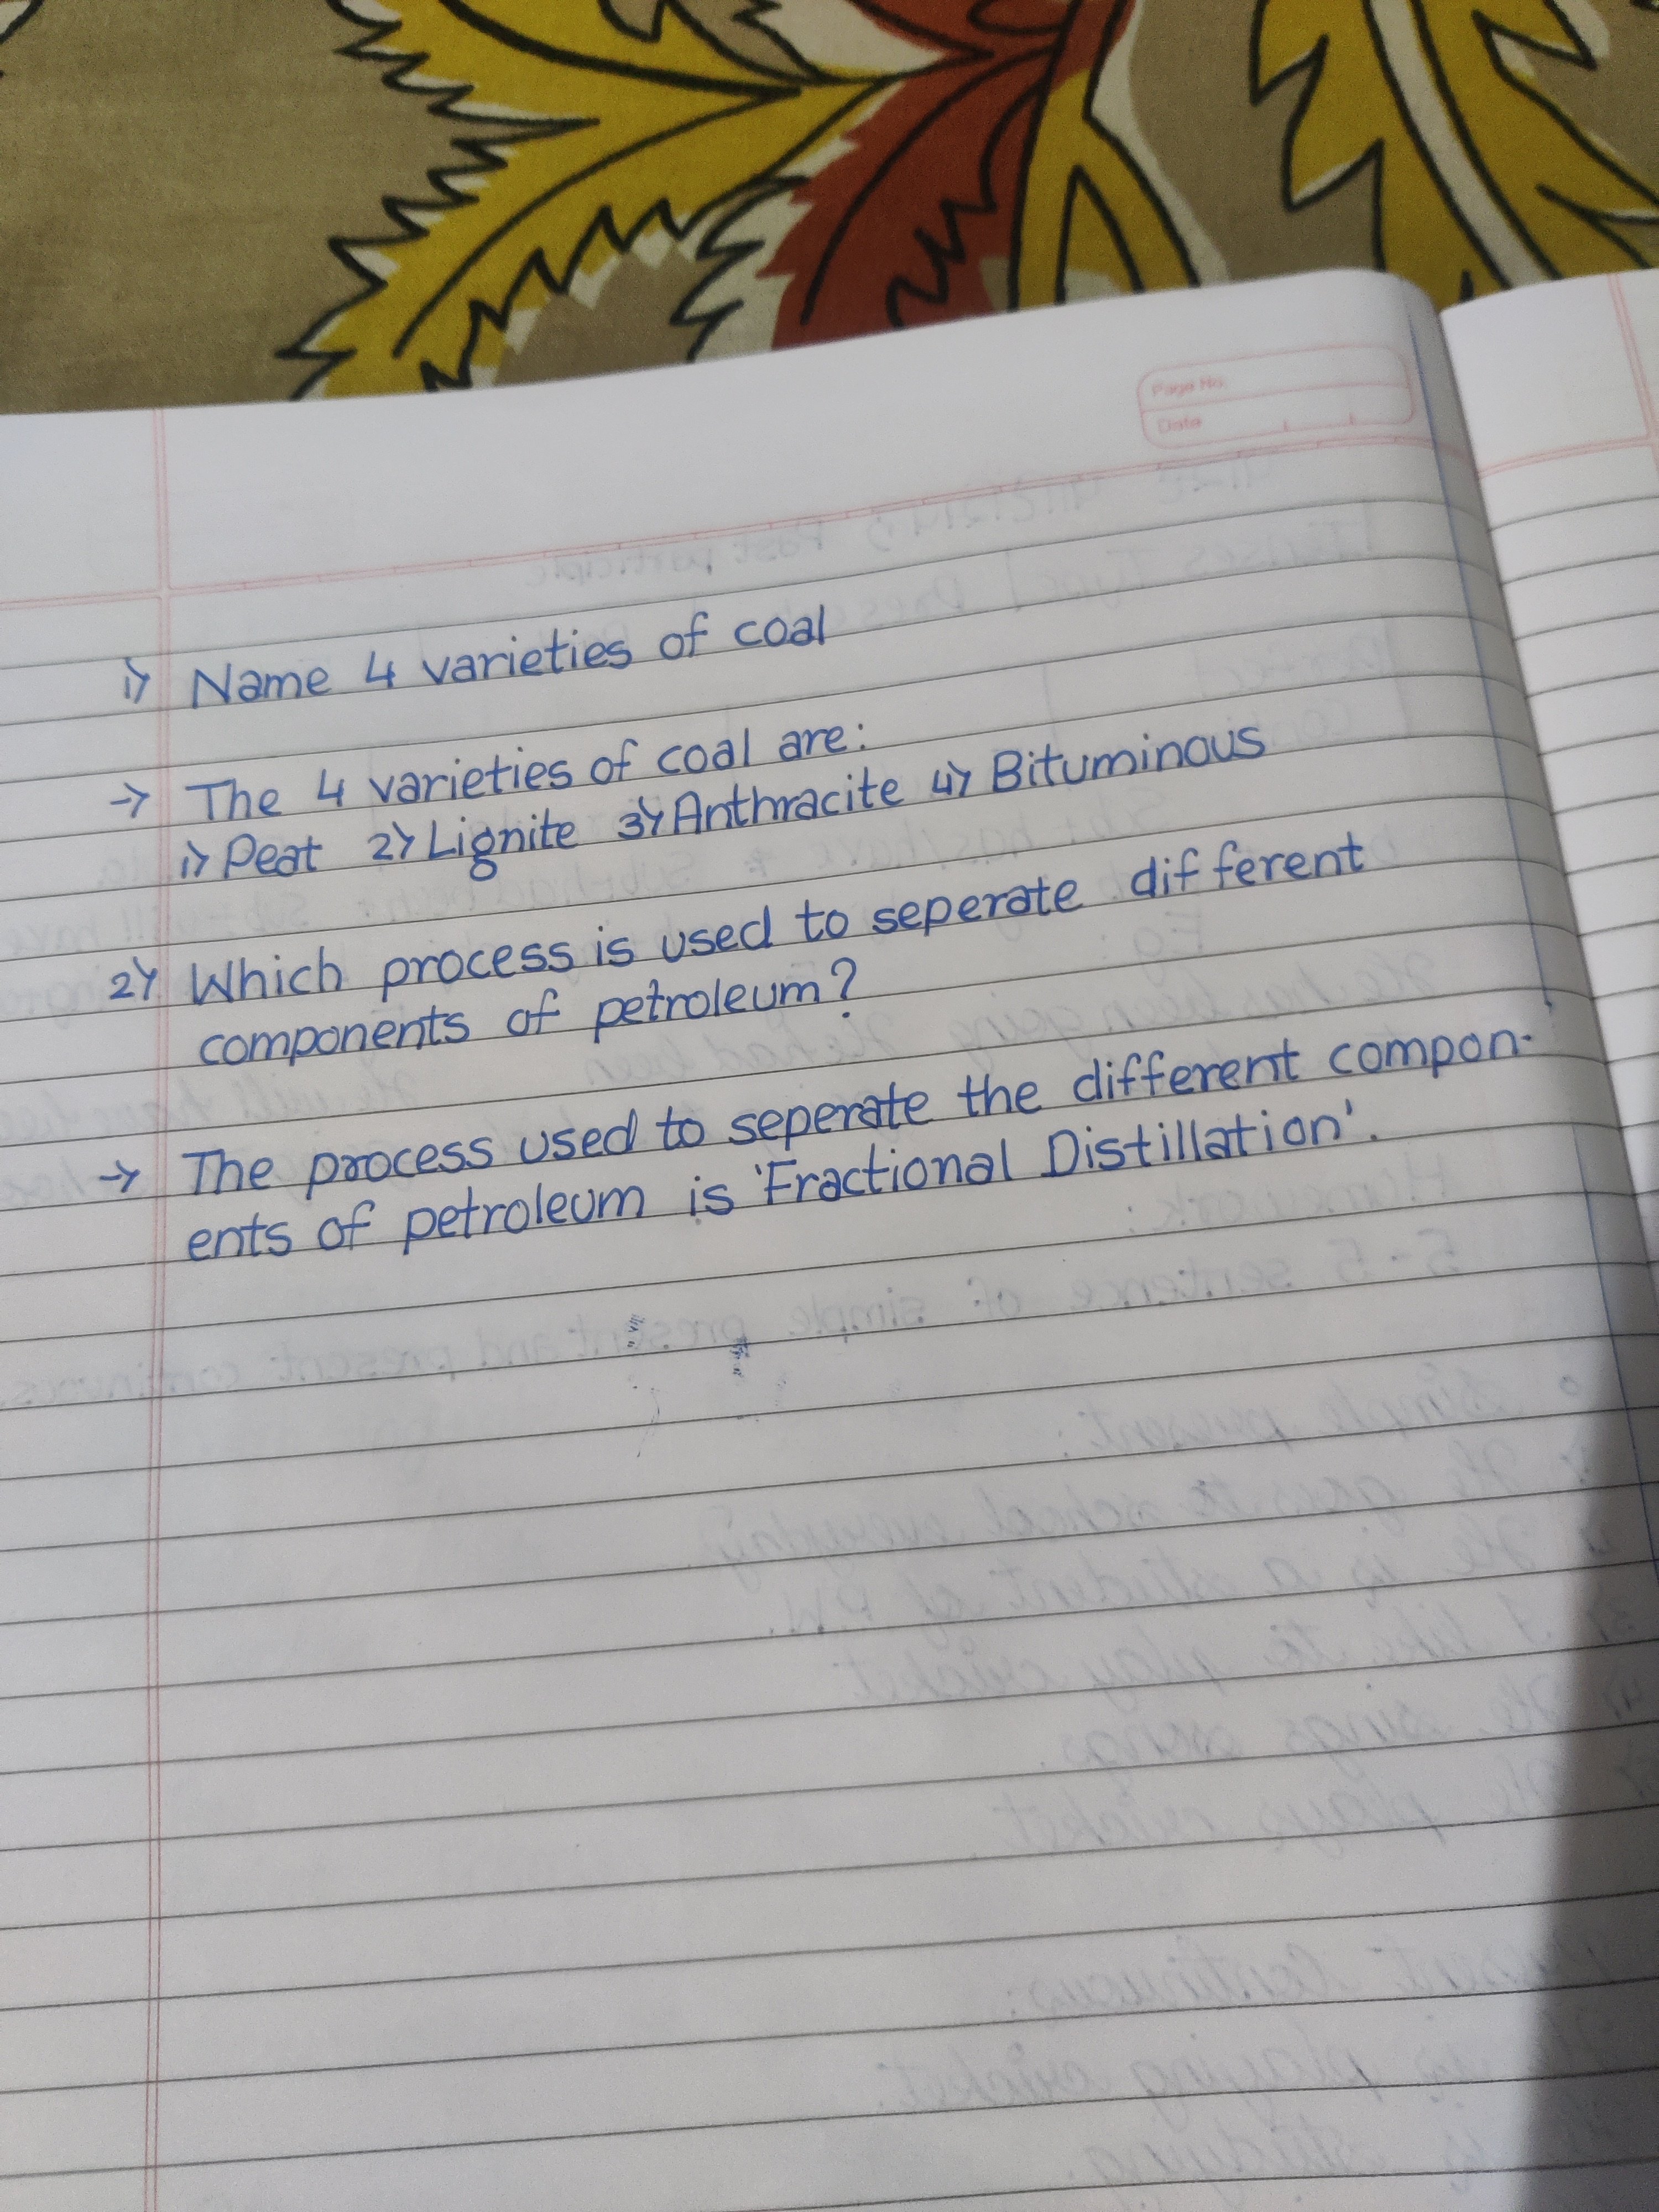 Page No.
Date
1) Name 4 varieties of coal
→ The 4 varieties of coal are:
1) Peat 2) Lignite 3) Anthracite 4) Bituminous
2) Which process is used to seperate different
components of petroleum?
→ The process used to seperate the different compon-
ents of petroleum is 'Fractional Distillation'.